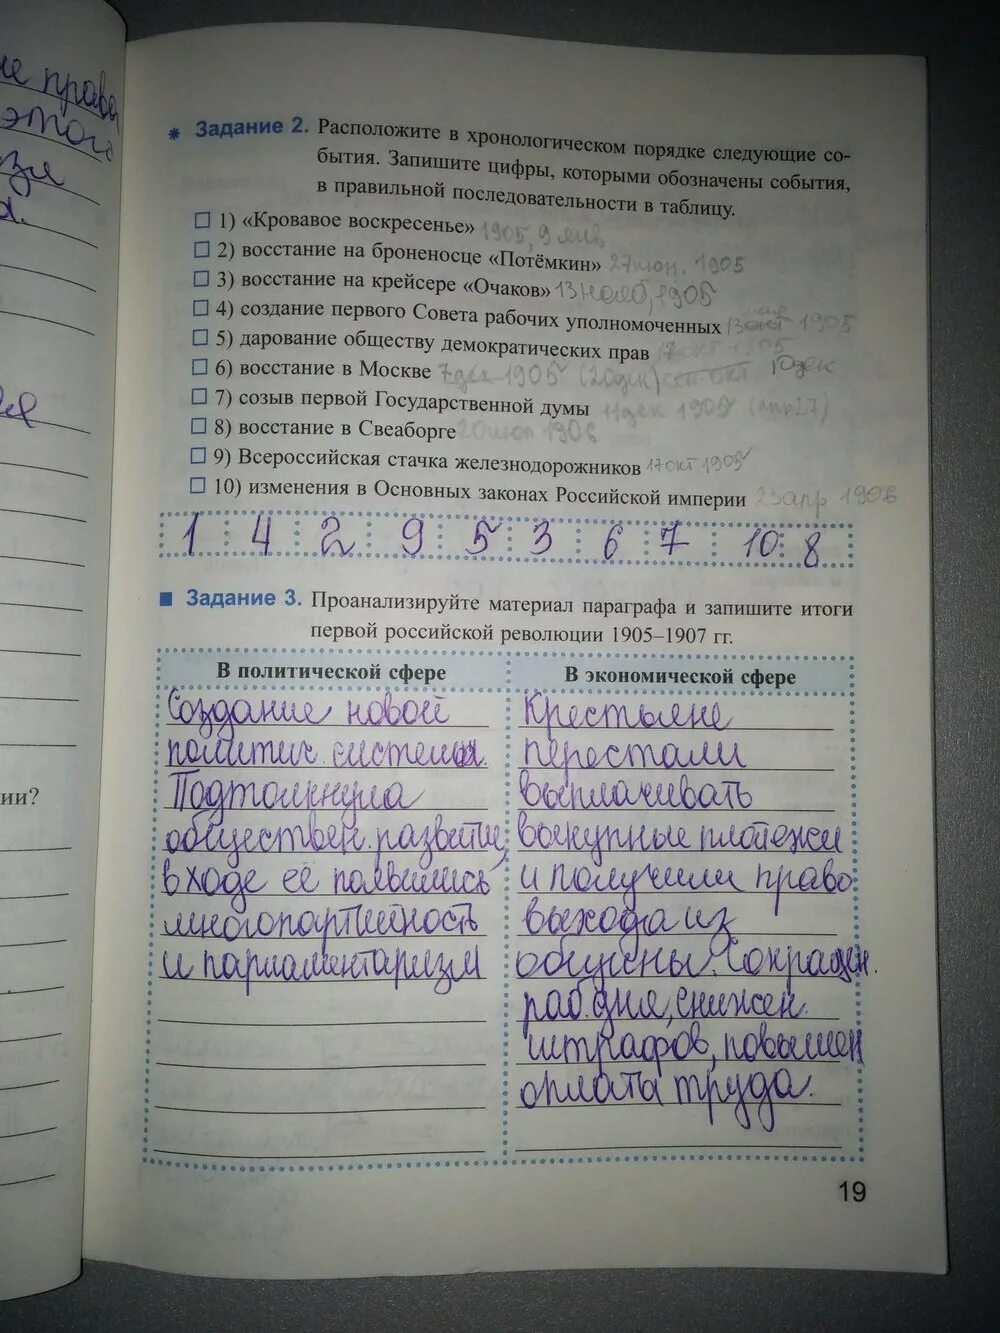 не права
этого
ии?
* Задание 2. Расположите в хронологическом порядке следующие со-
бытия. Запишите цифры, которыми обозначены события,
в правильной последовательности в таблицу.
1) «Кровавое воскресенье» 1905, 9 янв
2) восстание на броненосце «Потёмкин» 27 июн. 1905
3) восстание на крейсере «Очаков» 13 нояб, 1905
4) создание первого Совета рабочих уполномоченных 1905
5) дарование обществу демократических прав 17 окт 1905
6) восстание в Москве 7 дек 1905 (20 дек) 10 дек
7) созыв первой Государственной думы 11 дек 1905 (апр 27)
8) восстание в Свеаборге 20 июл 1906
9) Всероссийская стачка железнодорожников 17 окт 1905
10) изменения в Основных законах Российской империи 23 апр. 1906
1 4 2 9 5 3 6 7 10 8
Задание 3. Проанализируйте материал параграфа и запишите итоги
первой российской революции 1905–1907 гг.
В политической сфере
Создание новой
политич. системы.
Подтолкнула
обществен. развитие,
в ходе её появились
многопартийность
и парламентаризм
В экономической сфере
Крестьяне
перестали
выплачивать
выкупные платежи
и получили право
выхода из
общины. Сокращен.
раб. дня, снижен.
штрафов, повышен
оплата труда.
19